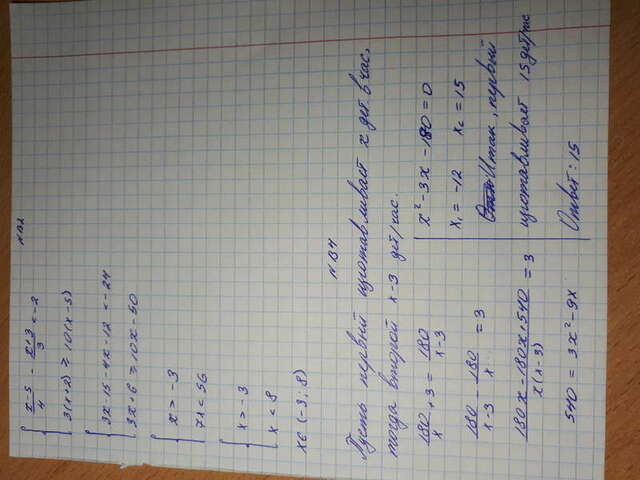 №B2
x-5/4 - x+3/3 < -2
3(x+2) ≥ 10(x-5)
3x-15-4x-12 < -24
3x+6 ≥ 10x-50
x > -3
7x < 56
x > -3
x < 8
x ∈ (-3; 8)
№B4
Пусть первый изготавливает x дет. в час,
тогда второй x-3 дет/час.
180/x + 3 = 180/x-3
180/x-3 - 180/x = 3
180x-180x+540/x(x-3) = 3
540 = 3x²-9x
x²-3x-180=0
x₁ = -12 x₂ = 15
Итак, первый
изготавливает 15 дет/час
Ответ: 15